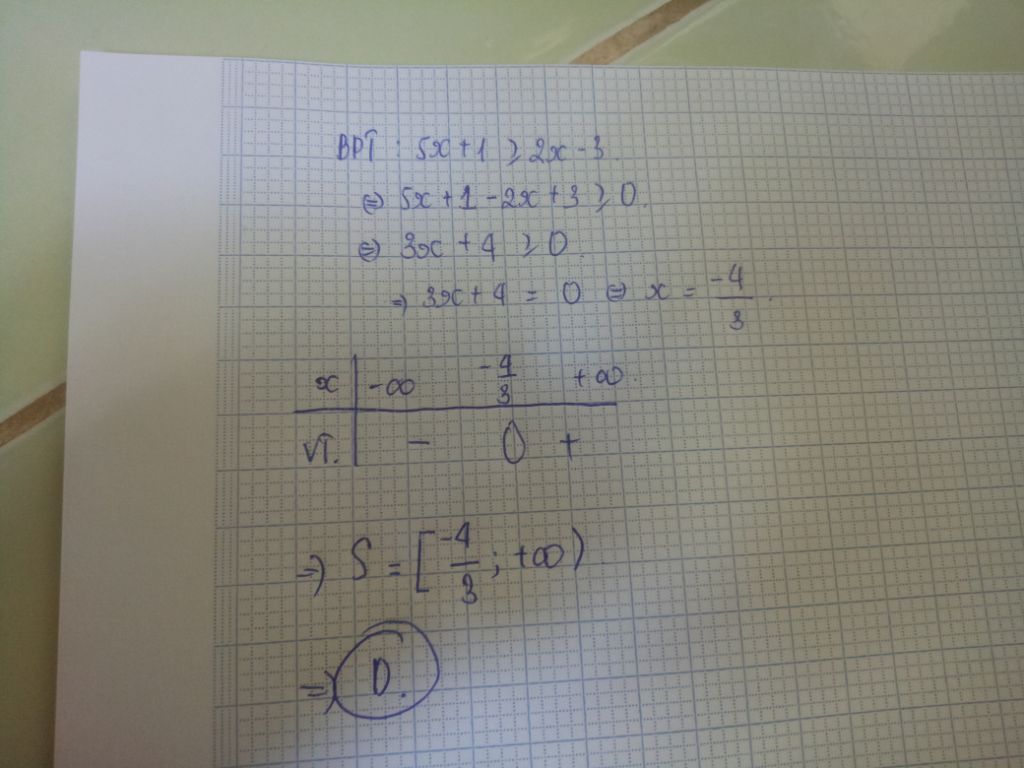 BPT : 5x + 1 ≥ 2x - 3.
⇔ 5x + 1 - 2x + 3 ≥ 0.
⇔ 3x + 4 ≥ 0.
⇒ 3x + 4 = 0 ⇔ x = -4/3.
x | -∞ -4/3 +∞.
VT. | - 0 +
⇒ S = [-4/3; +∞)
⇒ D.